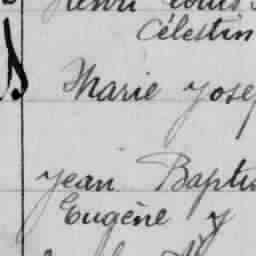 Henri Louis
Célestin
Marie Jose
Jean Baptis
Eugène y